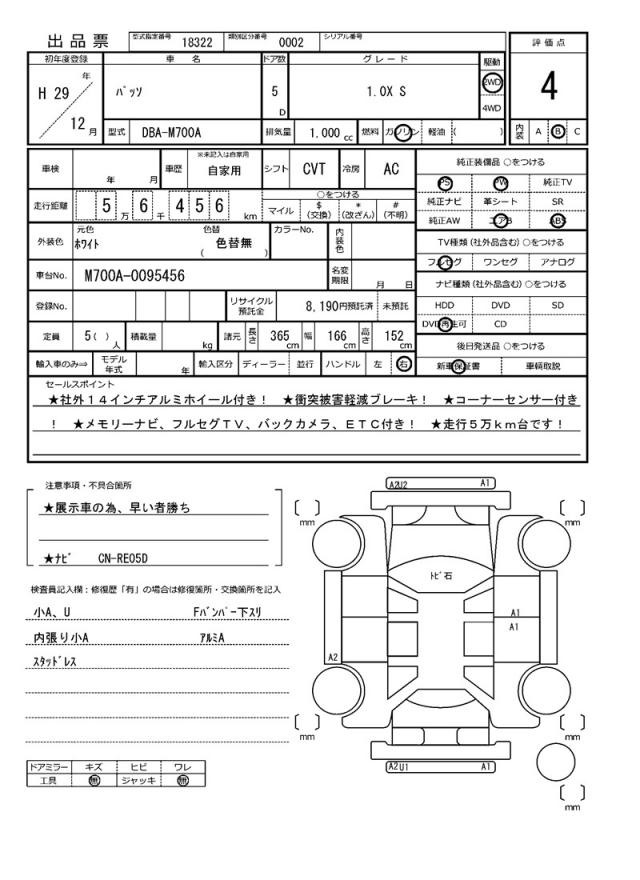 出品票 型式指定番号 18322 類別区分番号 0002 シリアル番号
評価点
4
初年度登録 車名 ドア数 グレード 駆動
H 29 年 12 月 パッソ 5 D 1.0X S 2WD 4WD
型式 DBA-M700A 排気量 1.000 cc 燃料 ガソリン 軽油 ( )
内装 A B C
車検 年 月 車歴 ※未記入は自家用 自家用 シフト CVT 冷房 AC
走行距離 5 万 6 千 4 5 6 km
○をつける
マイル $(交換) *(改ざん) #(不明)
外装色 元色 ホワイト 色替 ( 色替無 ) カラーNo. 内装色
車台No. M700A-0095456 名変期限 月 日
登録No. リサイクル預託金 8,190円預託済 未預託
定員 5( )人 積載量 kg 諸元 長さ 365 cm 幅 166 cm 高さ 152 cm
輸入車のみ⇒ モデル年式 年 輸入区分 ディーラー 並行 ハンドル 左 右
純正装備品 ○をつける
PS PW 純正TV
純正ナビ 革シート SR
純正AW エアB ABS
TV種類(社外品含む)○をつける
フルセグ ワンセグ アナログ
ナビ種類(社外品含む)○をつける
HDD DVD SD
DVD再生可 CD
後日発送品 ○をつける
新車保証書 車輌取説
セールスポイント
★社外14インチアルミホイール付き! ★衝突被害軽減ブレーキ! ★コーナーセンサー付き
! ★メモリーナビ、フルセグTV、バックカメラ、ETC付き! ★走行5万km台です!
注意事項・不具合箇所
★展示車の為、早い者勝ち
★ナビ CN-RE05D
検査員記入欄:修復歴「有」の場合は修復箇所・交換箇所を記入
小A、U Fバンパー下スリ
内張り小A アルミA
スタッドレス
ドアミラー キズ ヒビ ワレ
工具 無 ジャッキ 無
A2U2 A1
[ ] mm
[ ] mm
トビ石
A1
A1
A2
[ ] mm
[ ] mm
A2U1 A1
[ ] mm